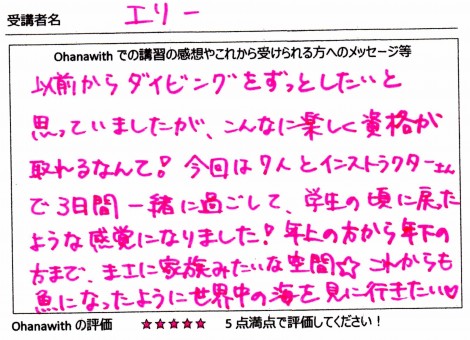 受講者名 エリー
Ohanawith での講習の感想やこれから受けられる方へのメッセージ等
以前からダイビングをずっとしたいと
思っていましたが、こんなに楽しく資格が
取れるなんて！今回は7人とインストラクターさん
で3日間一緒に過ごして、学生の頃に戻った
ような感覚になりました！年上の方から年下の
方まで、まさに家族みたいな空間☆☆これからも
魚になったように世界中の海を見に行きたい♡
Ohanawith の評価 ★★★★★ 5点満点で評価してください！